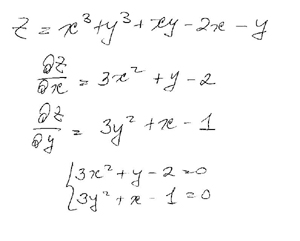 z = x³ + y³ + xy - 2x - y
∂z/∂x = 3x² + y - 2
∂z/∂y = 3y² + x - 1
{3x² + y - 2 = 0
{3y² + x - 1 = 0